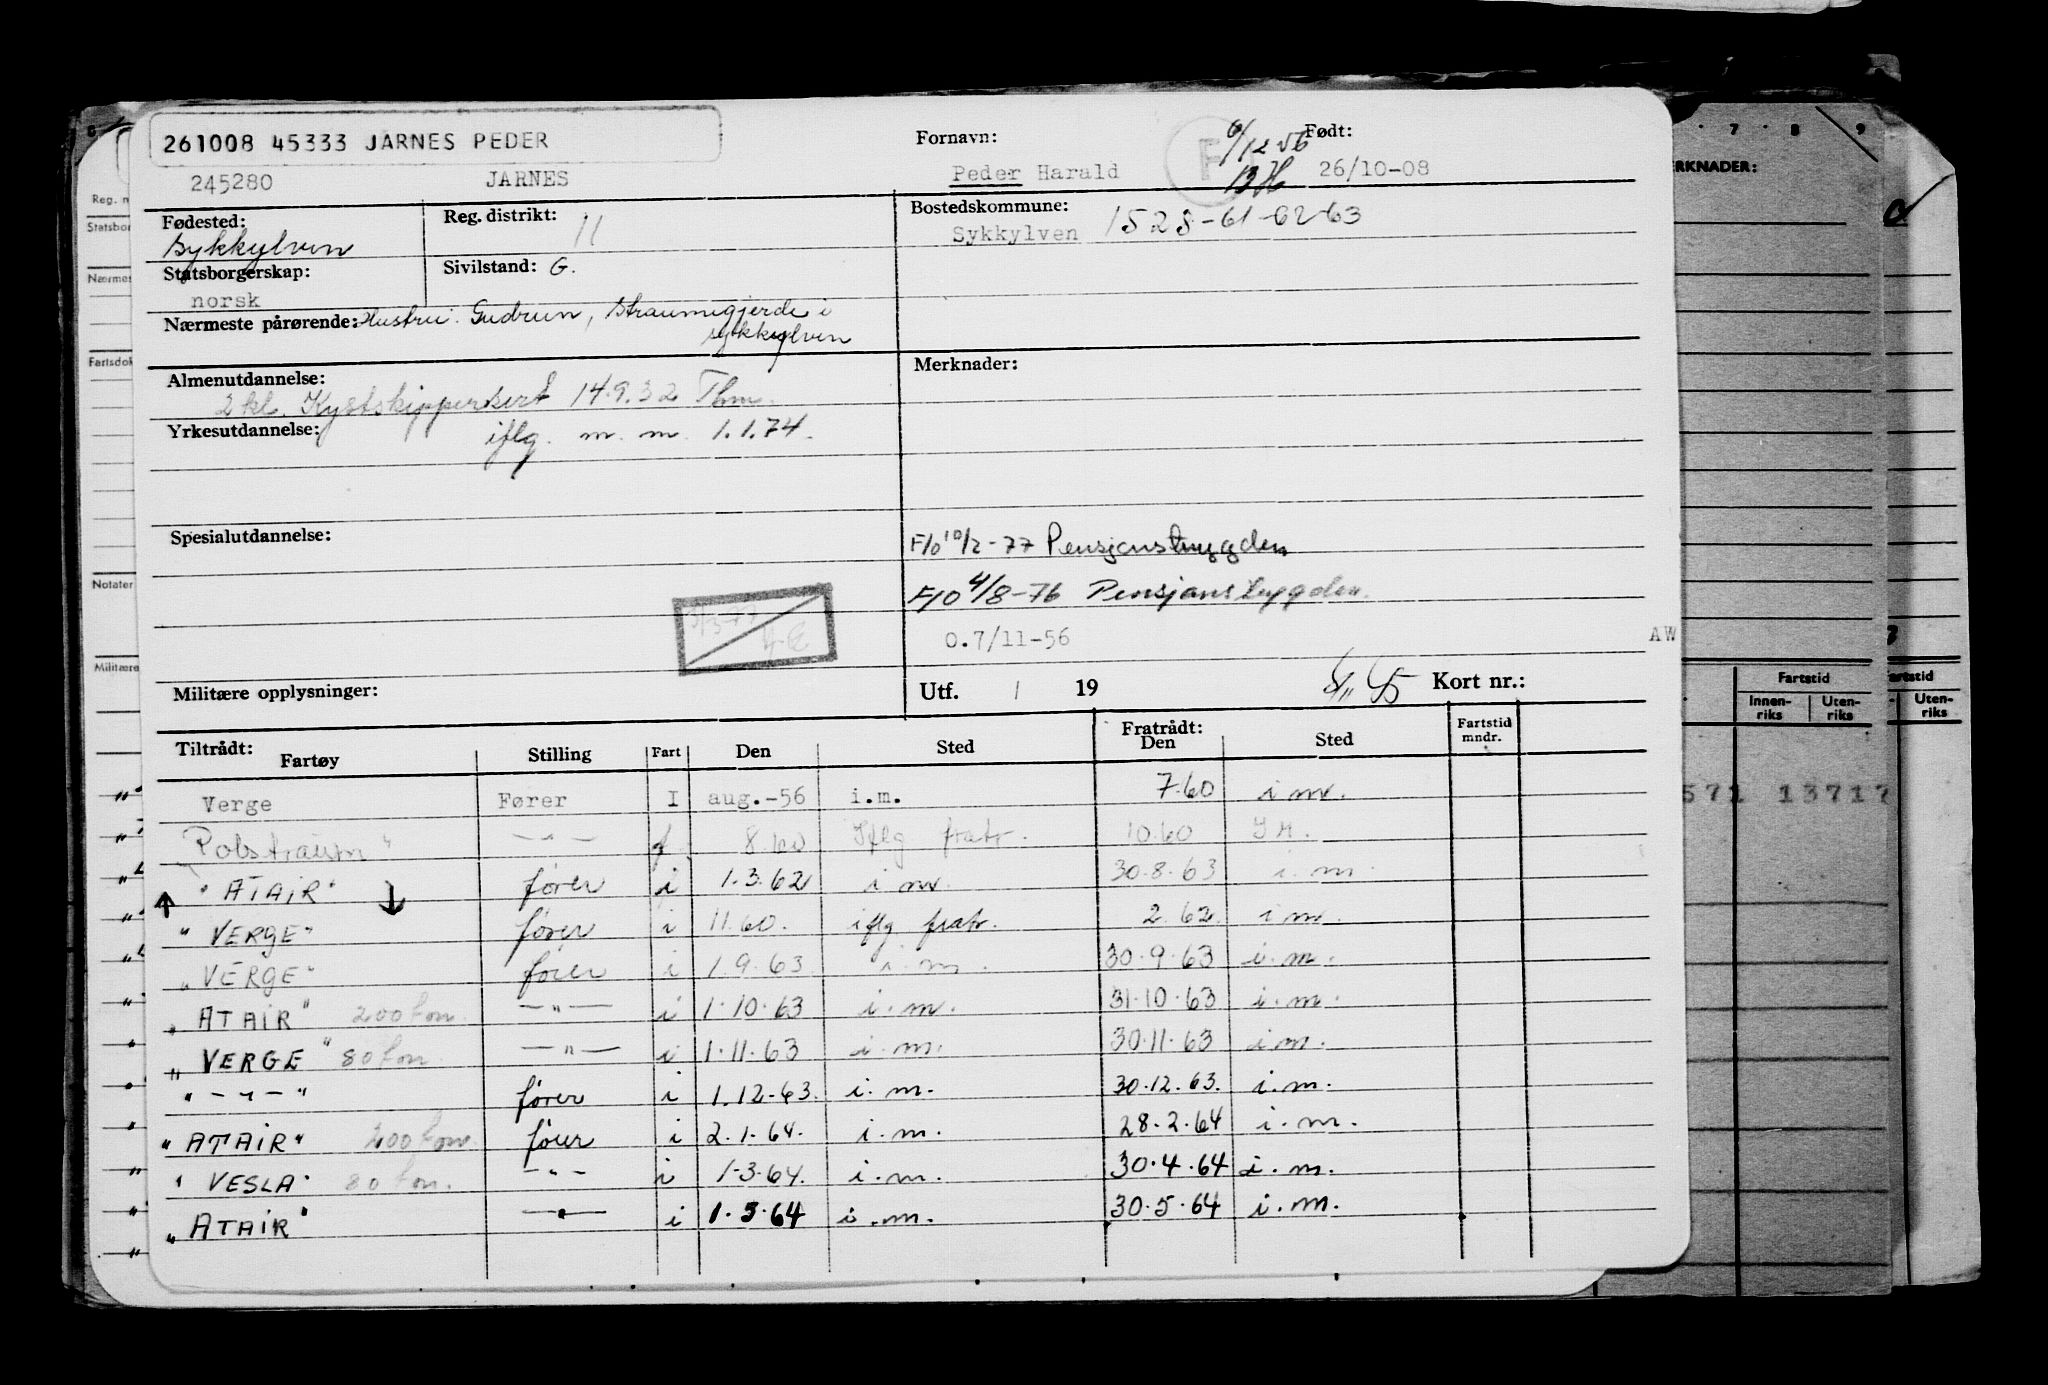 261008 45333 JARNES PEDER
245280 JARNES
Fornavn: Født:
Peder Harald 6/12 56 BH 26/10-08
Fødested: Reg. distrikt: 11 Bostedskommune:
Sykkylven Sykkylven 1528-61-62-63
Statsborgerskap: Sivilstand: G.
norsk
Nærmeste pårørende: Hustru: Gudrun, Straumgjerde i
Sykkylven
Almenutdannelse: Merknader:
2 kl. Kystskippersert 14.9.32 Thm.
Yrkesutdannelse: iflg. m. m. 1.1.74.
Spesialutdannelse:
F/O 10/2-77 Pensjonstrygden
F/O 4/8-76 Pensjonstrygden.
O.7/11-56 AW
Militære opplysninger: Utf. / 19 Kort nr.:
Tiltrådt: Fratrådt:
Fartøy Stilling Fart Den Sted Den Sted Fartstid mndr.
Verge Fører I aug.-56 i.m. 7.60 i m.
Polstraum" —"— f 8.60 Iflg fratr. 10.60 I M.
"ATAIR" fører i 1.3.62 i m. 30.8.63 i.m.
"VERGE" fører i 11.60. iflg fratr. 2.62. i m.
"VERGE" fører i 1.9.63. i.m. 30.9.63 i.m.
"ATAIR" 200 tonn. —"— i 1.10.63 i.m. 31.10.63 i.m.
"VERGE" 80 tonn —"— i 1.11.63 i.m. 30.11.63 i.m.
"-"-" fører i 1.12-63. i.m. 30.12.63. i.m.
"ATAIR" 200 tonn fører i 2.1.64. i.m. 28.2.64 i.m.
"VESLA" 80 tonn. -"- i 1-3.64. i.m. 30.4.64 i.m.
"ATAIR" —"— i 1.5.64 i.m. 30.5.64 i.m.
Reg. n
Statsbor
Nærmes
Fartsdok
Notater
Militære
7 8 9
ERKNADER:
Fartstid
Innen-riks Uten-riks
571 13717
Fartstid
Uten-riks